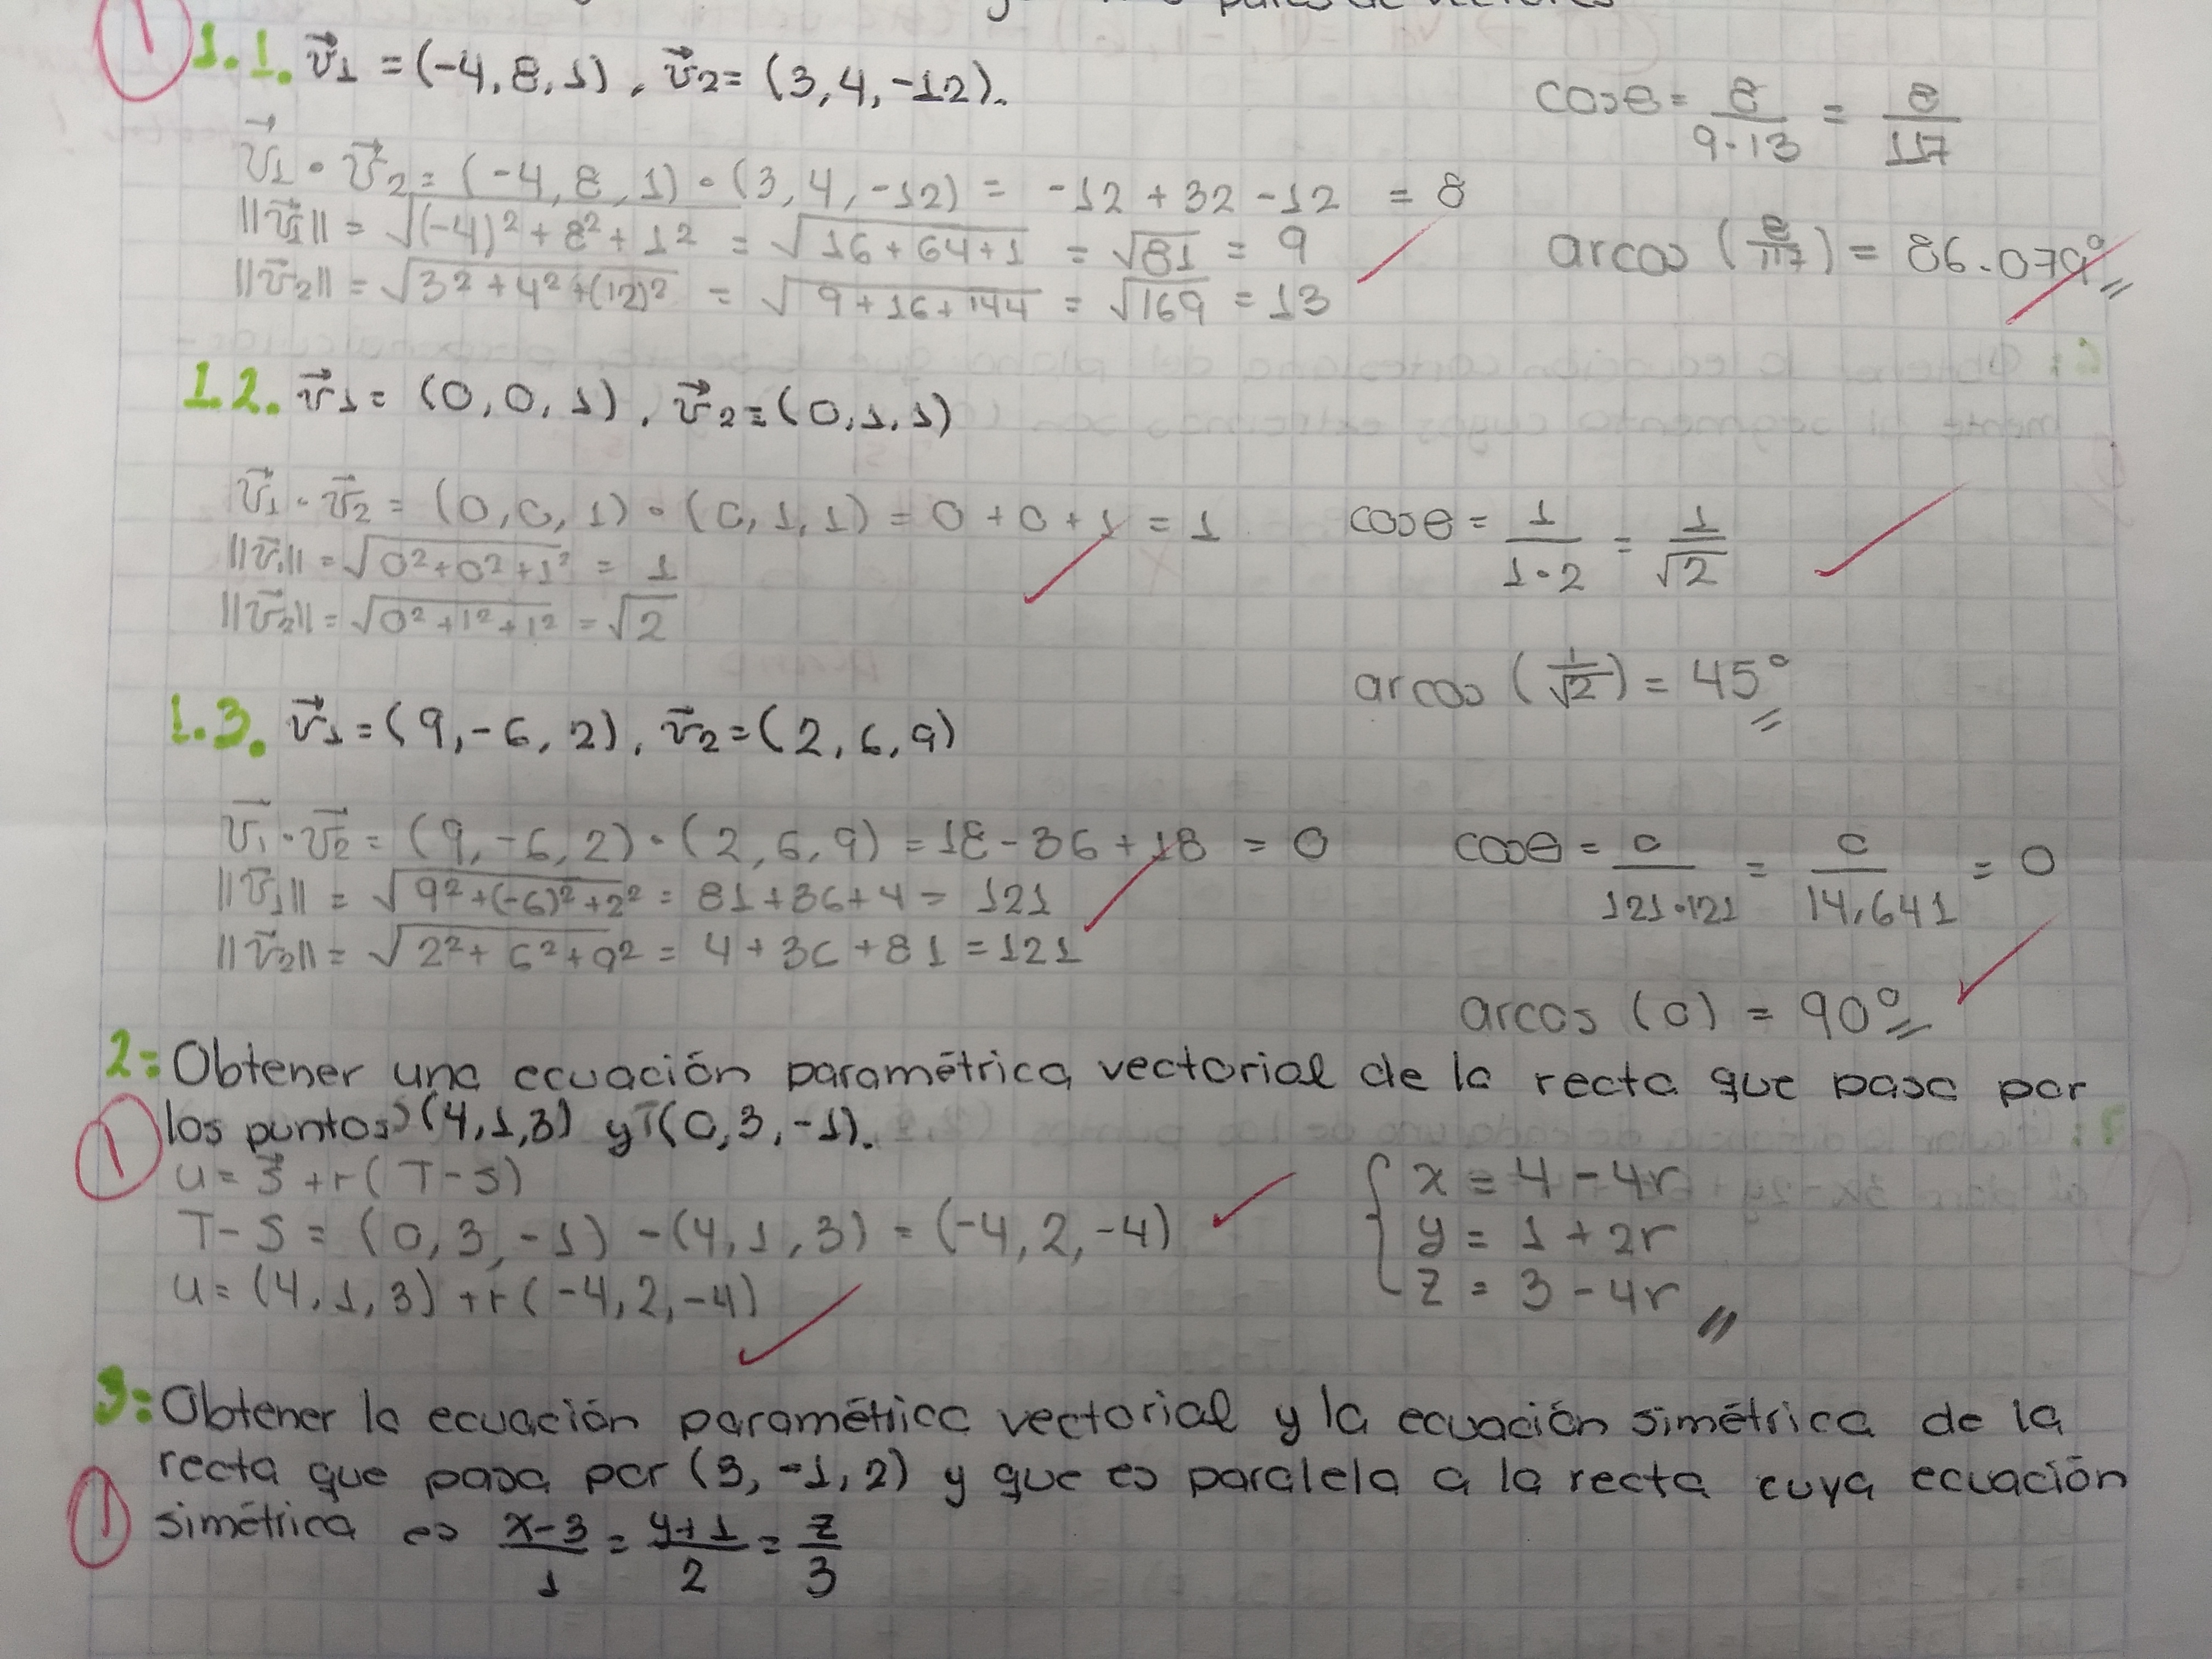 pares de vectores
1 1.1. v⃗1 = (-4, 8, 1), v⃗2 = (3, 4, -12).
v⃗1 · v⃗2 = (-4, 8, 1) · (3, 4, -12) = -12 + 32 - 12 = 8
||v⃗1|| = √((-4)² + 8² + 1²) = √(16 + 64 + 1) = √81 = 9
||v⃗2|| = √(3² + 4² + (12)²) = √(9 + 16 + 144) = √169 = 13
cosθ = 8/(9·13) = 8/117
arcos (8/117) = 86.079°
1.2. v⃗1 = (0, 0, 1), v⃗2 = (0, 1, 1)
v⃗1 · v⃗2 = (0, 0, 1) · (0, 1, 1) = 0 + 0 + 1 = 1
||v⃗1|| = √(0² + 0² + 1²) = 1
||v⃗2|| = √(0² + 1² + 1²) = √2
cosθ = 1/(1·2) = 1/√2
arcos (1/√2) = 45°
1.3. v⃗1 = (9, -6, 2), v⃗2 = (2, 6, 9)
v⃗1 · v⃗2 = (9, -6, 2) · (2, 6, 9) = 18 - 36 + 18 = 0
||v⃗1|| = √(9² + (-6)² + 2²) = 81 + 36 + 4 = 121
||v⃗2|| = √(2² + 6² + 9²) = 4 + 36 + 81 = 121
cosθ = 0/(121·121) = 0/14,641 = 0
arcos (0) = 90°
2: Obtener una ecuación paramétrica vectorial de la recta que pasa por
1 los puntos S(4, 1, 3) y T(0, 3, -1).
u = S⃗ + r(T - S)
T - S = (0, 3, -1) - (4, 1, 3) = (-4, 2, -4)
u = (4, 1, 3) + r(-4, 2, -4)
x = 4 - 4r
y = 1 + 2r
z = 3 - 4r
3: Obtener la ecuación paramétrica vectorial y la ecuación simétrica de la
recta que pasa por (3, -1, 2) y que es paralela a la recta cuya ecuación
1 simétrica es (x-3)/1 = (y+1)/2 = z/3